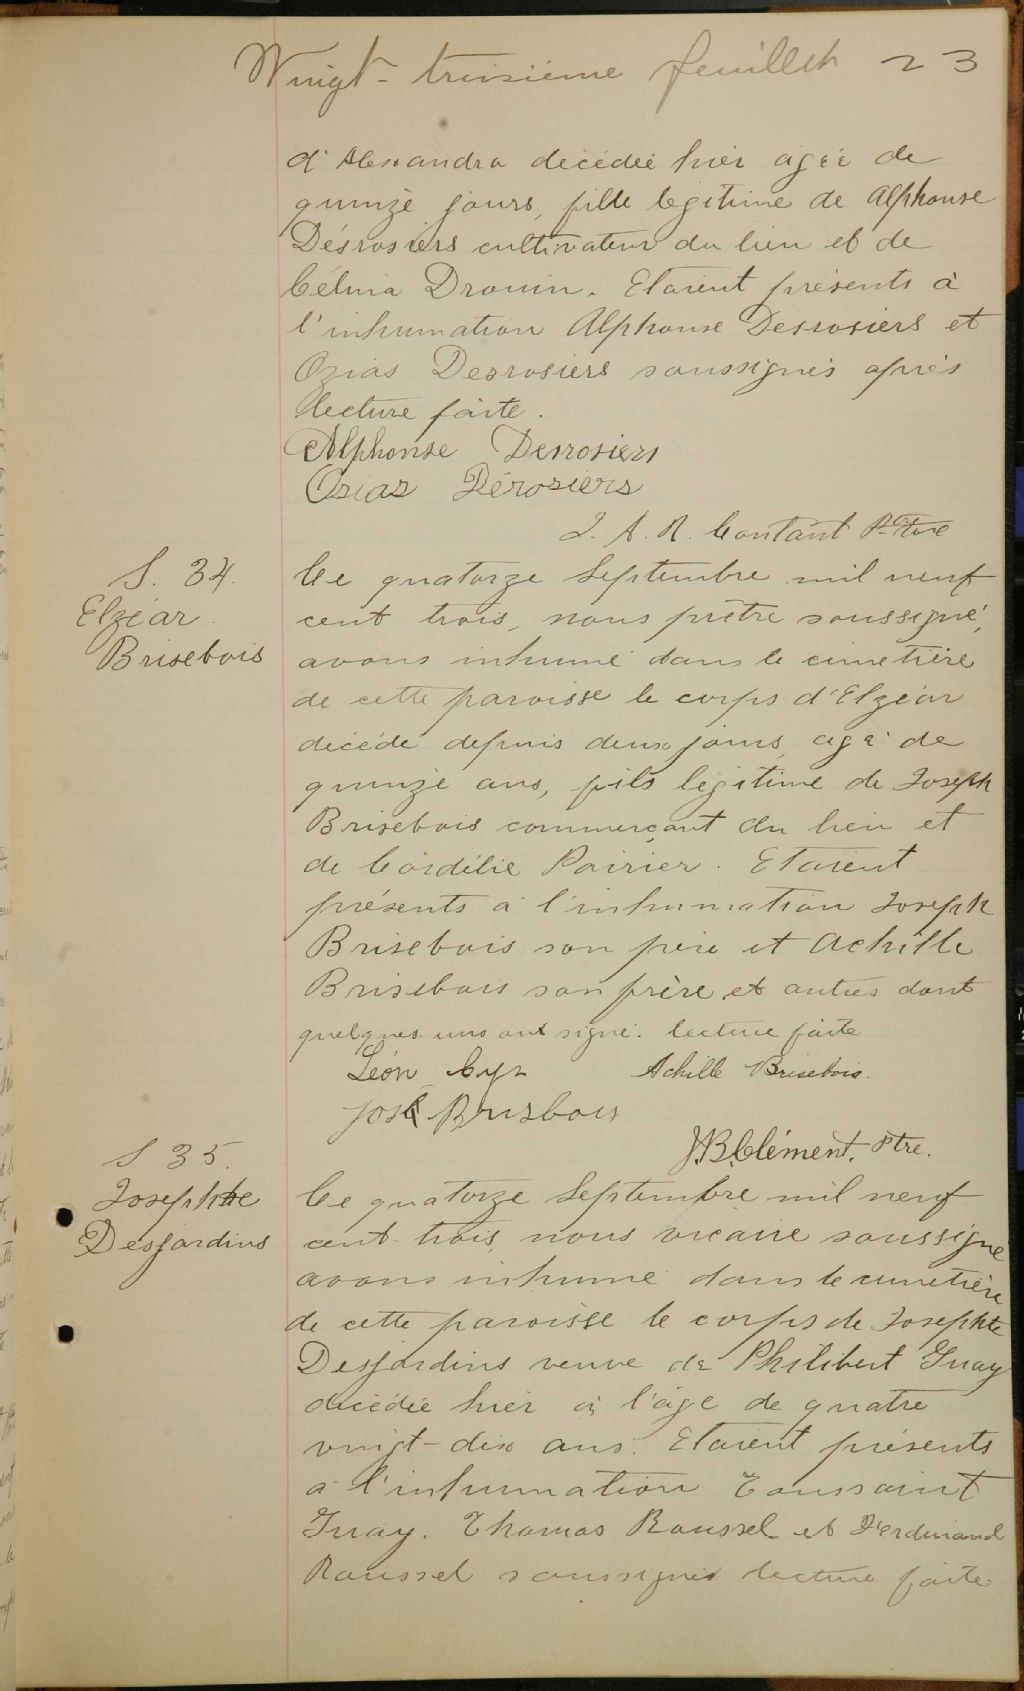 Vingt-troisième feuillet 23
d'Alexandra décédée hier agée de
quinze jours, fille legitime de Alphonse
Désrosiers cultivateur du lieu et de
Célina Drouin. Etaient présents à
l'inhumation Alphonse Desrosiers et
Ozias Desrosiers soussignés après
lecture faite.
Alphonse Desrosiers
Osias Dérosiers
J. A. R. Contant Ptre
S. 34.
Elzéar
Brisebois
Ce quatorze Septembre mil neuf
cent trois, nous prêtre soussigné,
avons inhumé dans le cimetière
de cette paroisse le corps d'Elzéar
décédé depuis deux jours agé de
quinze ans, fils légitime de Joseph
Brisebois commerçant du lieu et
de Cordélie Poirier. Etaient
présents à l'inhumation Joseph
Brisebois son père et Achille
Brisebois son frère et autres dont
quelques uns ont signé. lecture faite
Léon Cyr Achille Brisebois.
Jos Brisbois
J.B. Clément, Ptre.
S 35.
Josephte
Desjardins
Ce quatorze Septembre mil neuf
cent-trois, nous vicaire soussigné
avons inhumé dans le cimetière
de cette paroisse le corps de Josephte
Desjardins veuve de Philibert Guay
décédée hier à l'âge de quatre
vingt-dix ans. Etaient présents
à l'inhumation Toussaint
Guay. Thomas Roussel et Ferdinand
Roussel soussignés lecture faite